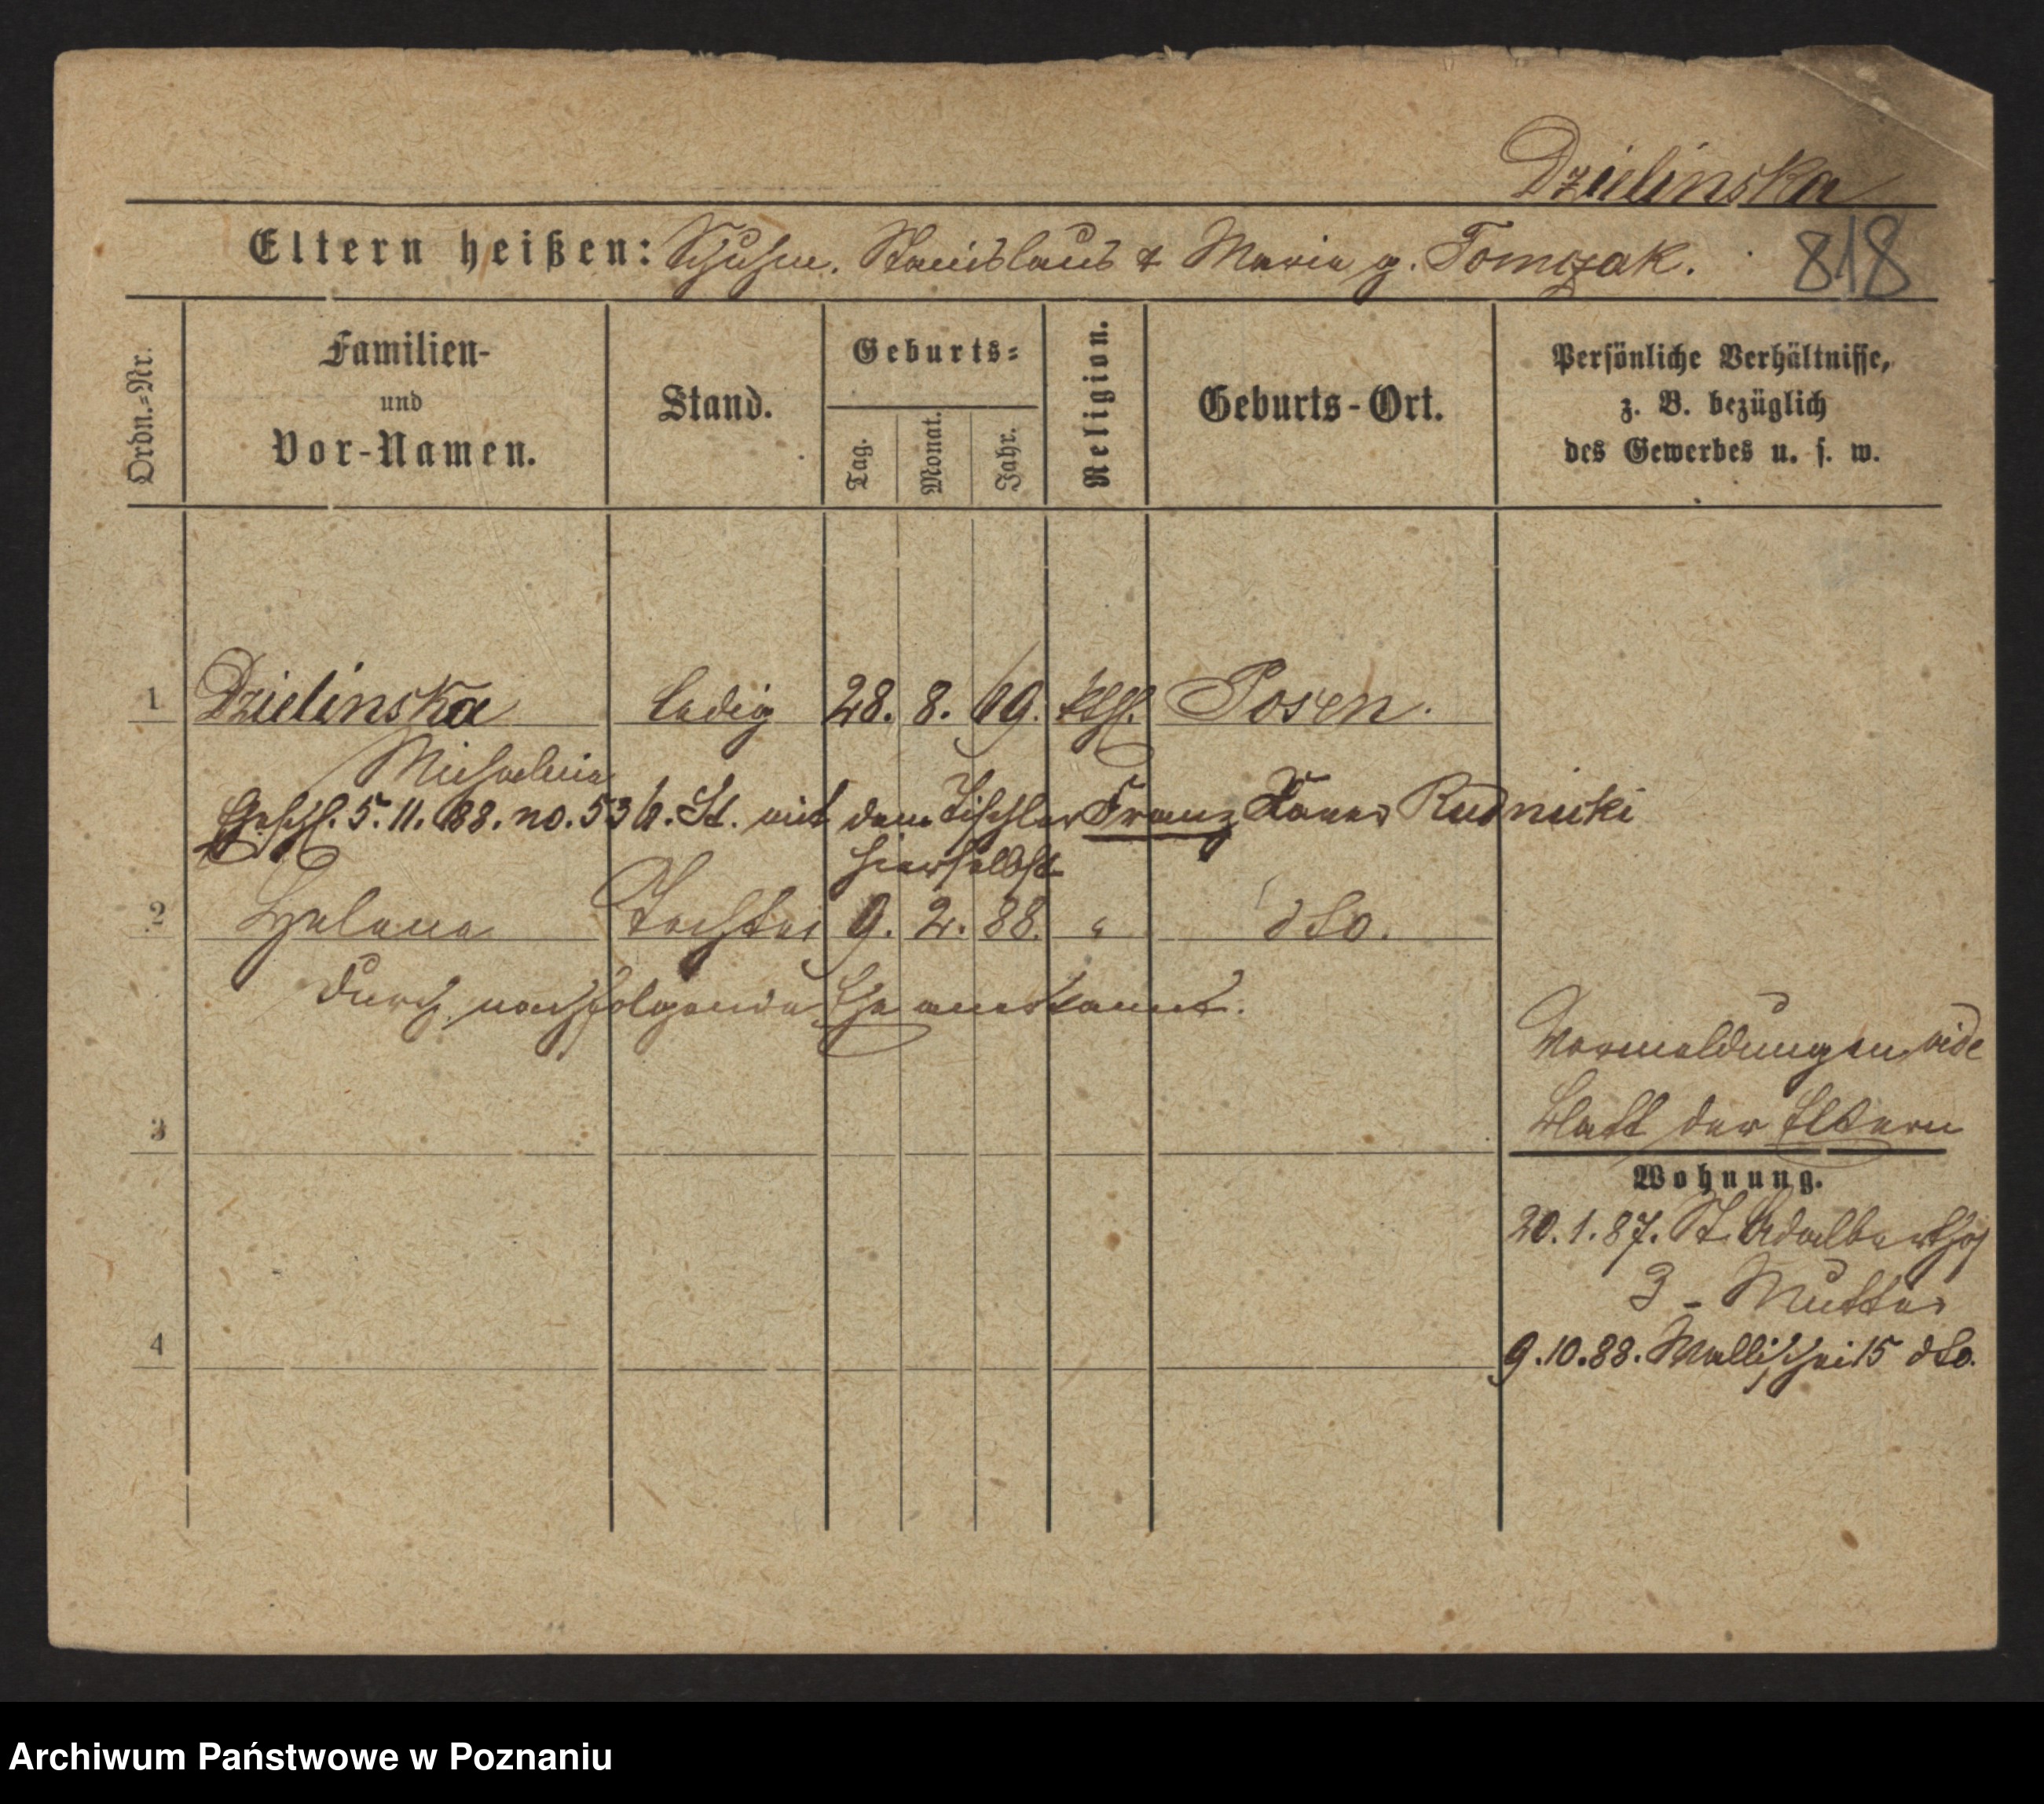 Dzielinska
Eltern heißen: Schuhm. Stanislaus & Maria g. Tomczak. 818
Ordn.=Nr.
Familien-
und
Vor-Namen.
Stand.
Geburts=
Tag.
Monat.
Jahr.
Religion.
Geburts-Ort.
Persönliche Verhältnisse,
z. B. bezüglich
des Gewerbes u. s. w.
1 Dzielinska ledig 28. 8. 69. kth. Posen.
Michalina
Eheschl. 5. 11. 88. no. 536 h. St. mit dem Tischler Franz Xaver Rudnicki
hierselbst
2 Helena Tochter 9. 2. 88. " dto.
durch nachfolgende Ehe anerkannt.
Vormeldungen vide
Blatt der Eltern
3
Wohnung.
20. 1. 87. St. Adalberthof
3 - Mutter
4
9. 10. 88. Wallischei 15 dto.
Archiwum Państwowe w Poznaniu